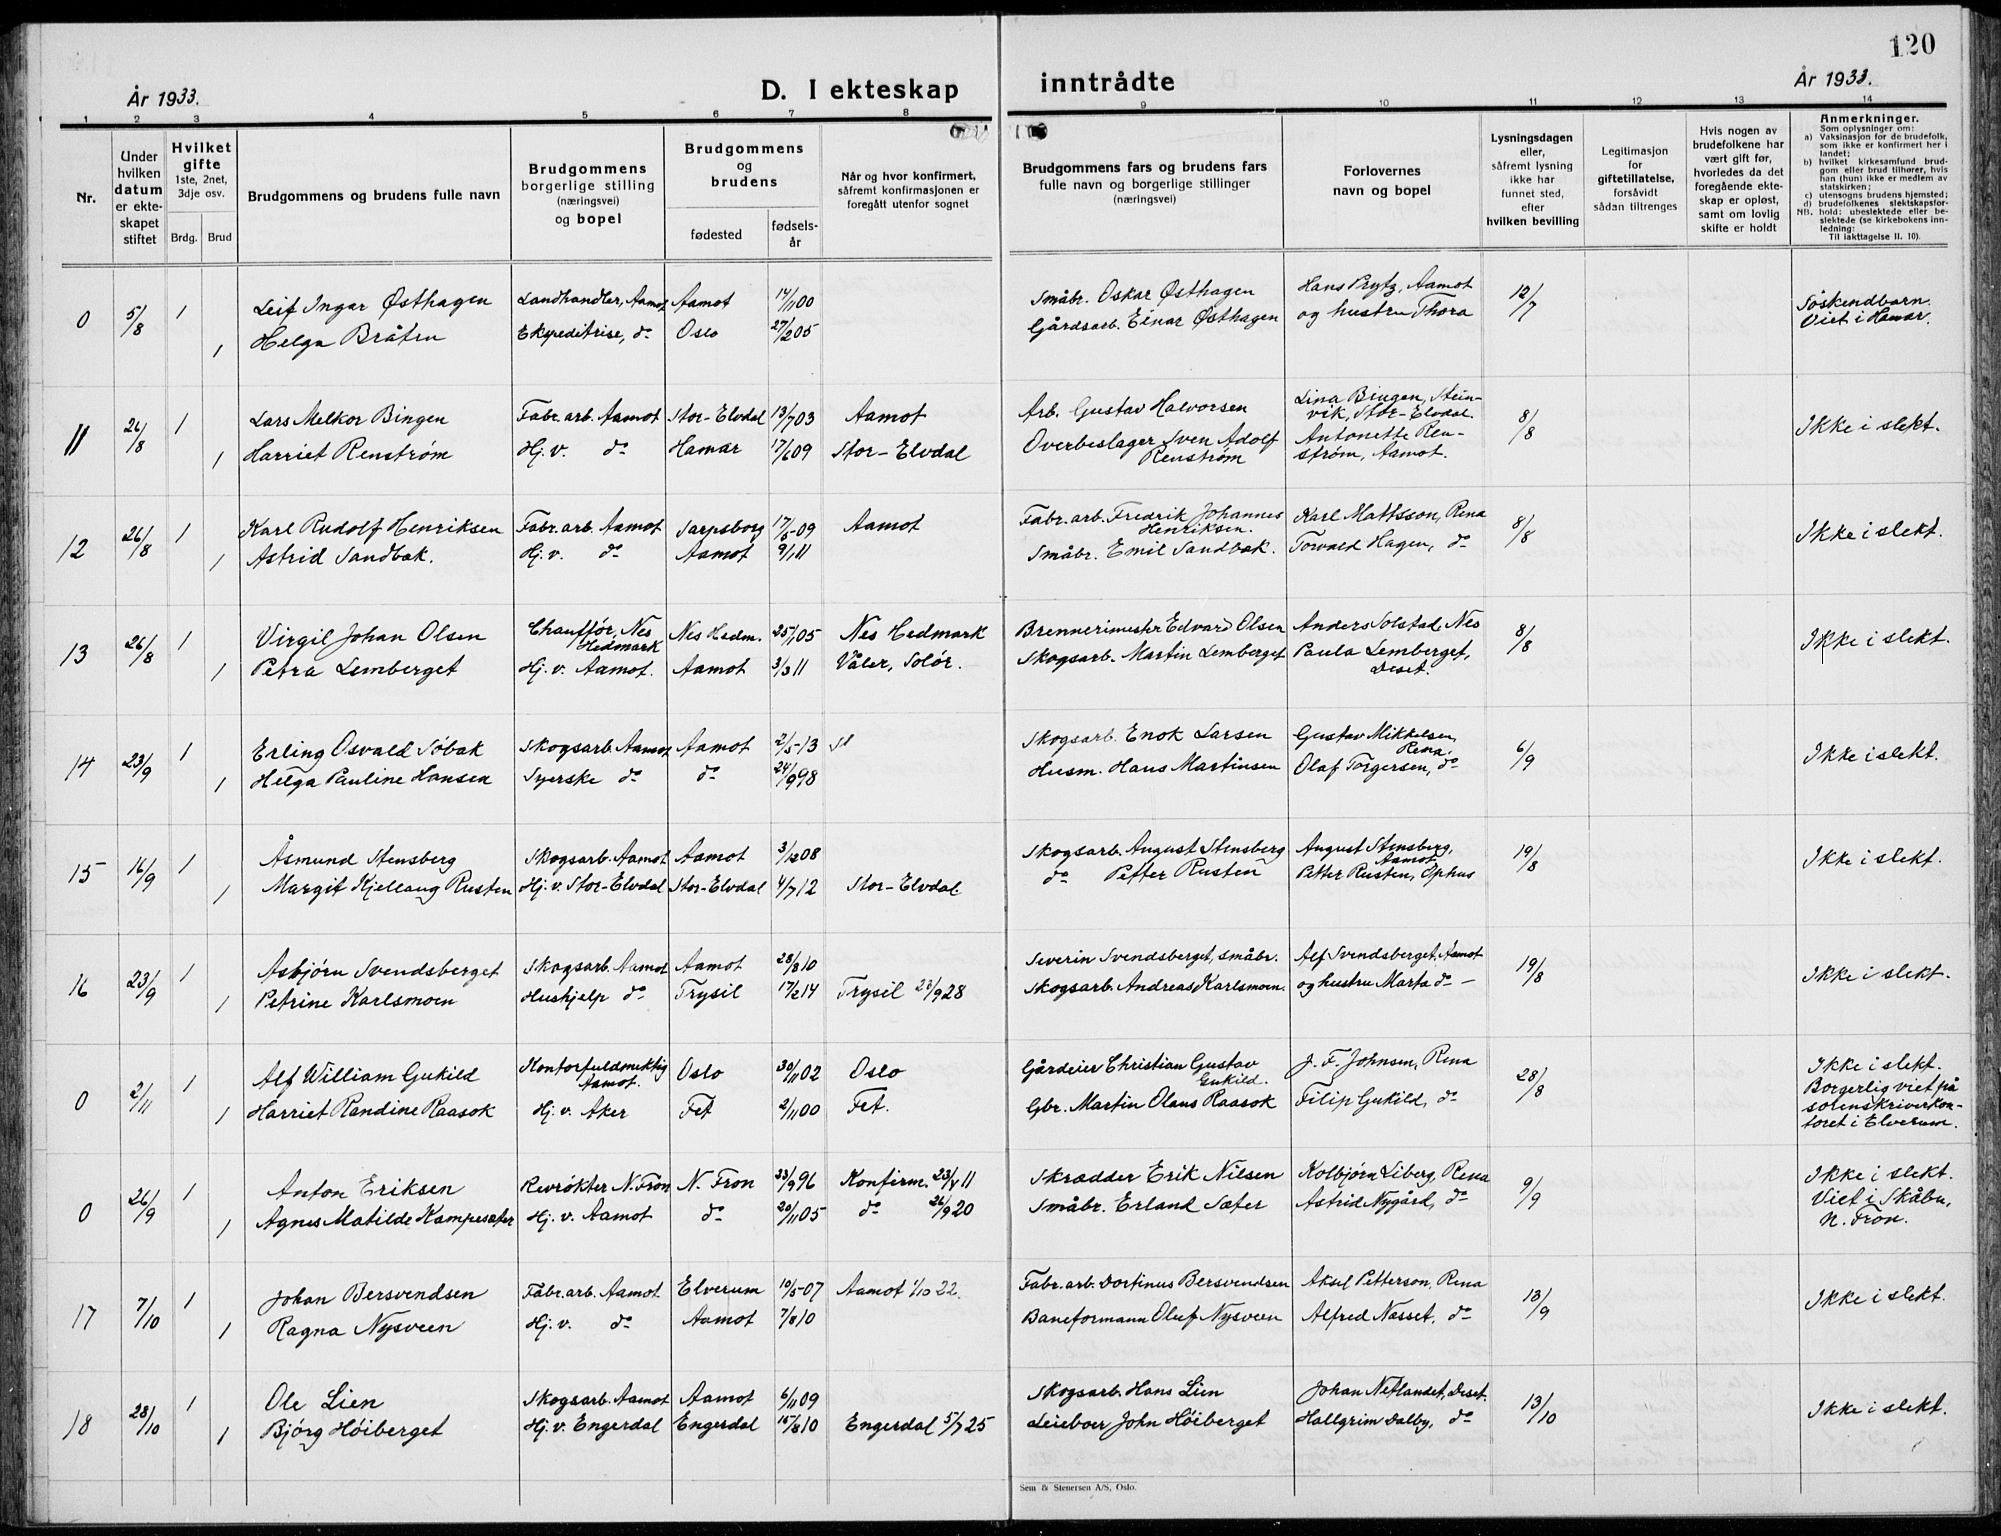 120
År 1933.
D. I ekteskap inntrådte
År 1933.
1 2 3 4 5 6 7 8 9 10 11 12 13 14
Nr.
Under hvilken datum er ekteskapet stiftet
Hvilket gifte
1ste, 2net, 3dje osv.
Brdg. Brud
Brudgommens og brudens fulle navn
Brudgommens borgerlige stilling (næringsvei) og bopel
Brudgommens og brudens
fødested
fødsels-år
Når og hvor konfirmert, såfremt konfirmasjonen er foregått utenfor sognet
Brudgommens fars og brudens fars fulle navn og borgerlige stillinger (næringsvei)
Forlovernes navn og bopel
Lysningsdagen eller, såfremt lysning ikke har funnet sted, efter hvilken bevilling
Legitimasjon for giftetillatelse, forsåvidt sådan tiltrenges
Hvis nogen av brudefolkene har vært gift før, hvorledes da det foregående ekteskap er opløst, samt om lovlig skifte er holdt
Anmerkninger.
Som oplysninger om:
a) Vaksinasjon for de brudefolk, som ikke er konfirmert her i landet;
b) hvilket kirkesamfund brudgom eller brud tilhører, hvis han (hun) ikke er medlem av statskirken;
c) utensogns brudens hjemsted;
d) brudefolkenes slektskapsforhold: ubeslektede eller beslektede (se kirkebokens innledning:
NB. Til iakttagelse II. 10).
0 5/8 1 Leif Ingar Østhagen Landhandler, Aamot Aamot 14/11 00 Småbr. Oskar Østhagen Hans Prytz, Aamot 12/7 Søskendbarn.
1 Helga Bråten Ekspeditrise, do Oslo 27/2 05 Gårdsarb. Einar Østhagen og hustru Thora Viet i Hamar.
11 26/8 1 Lars Melkor Bingen Fabr. arb. Aamot Stor-Elvdal 13/7 03 Aamot Arb. Gustav Halvorsen Lina Bingen, Steinvik, Stor-Elvdal. 8/8 Ikke i slekt.
1 Harriet Renstrøm Hj. v. do Hamar 17/6 09 Stor-Elvdal Overbeslager Sven Adolf Renstrøm Antonette Renstrøm, Aamot.
12 26/8 1 Karl Rudolf Henriksen Fabr. arb. Aamot Sarpsborg 17/5-09 Aamot Fabr. arb. Fredrik Johannes Henriksen. Karl Mattsson, Rena 8/8 Ikke i slekt.
1 Astrid Sandbak. Hj. v. do Aamot 9/1 11 Småbr. Emil Sandbak. Torvald Hagen, do
13 26/8 1 Virgil Johan Olsen Chauffør, Nes Hedmark Nes Hedm. 25/1 05 Nes Hedmark Brennerimester Edvard Olsen Anders Solstad, Nes 8/8 Ikke i slekt.
1 Petra Lemberget Hj. v. Aamot. Aamot 3/3 11 Våler, Solør. Skogsarb. Martin Lemberget Paula Lemberget, Deset.
14 23/9 1 Erling Osvald Søbak Skogsarb. Aamot Aamot 2/5-13 Skogsarb. Enok Larsen Gustav Mikkelsen, Rena. 6/9 Ikke i slekt.
1 Helga Pauline Hansen Syerske do do 24/9 98 Husm. Hans Martinsen Olaf Torgersen, do
15 16/9 1 Åsmund Stensberg Skogsarb. Aamot Aamot 3/12 08 Skogsarb. August Stensberg August Stensberg, Aamot 19/8 Ikke i slekt.
1 Margit Kjellaug Rusten Hj. v. Stor-Elvdal Stor-Elvdal 4/7 12 Stor-Elvdal do Petter Rusten Petter Rusten, Ophus
16 23/9 1 Asbjørn Svendsberget Skogsarb. Aamot Aamot 28/8 10 Severin Svendsberget, småbr. Alf Svendsberget, Aamot 19/8 Ikke i slekt.
1 Petrine Karlsmoen Hushjelp do Trysil 17/2 14 Trysil 23/9 28 Skogsarb. Andreas Karlsmoen. og hustru Marta do -
0 2/11 1 Alf William Gukild Kontorfuldmektig Aamot. Oslo 30/11 02 Oslo Gårdeier Christian Gustav Gukild. J. F. Johnsen, Rena 28/8 Ikke i slekt.
1 Harriet Randine Raasok Hj. v. Aker Fet 2/11 00 Fet. Gbr. Martin Olaus Raasok Filip Gukild, do Borgerlig viet på sorenskriverkontoret i Elverum.
0 26/9 1 Anton Eriksen Revrøkter N. Fron N. Fron 23/9 96 Konfirm. 23/4 11 Skrædder Erik Nilsen Kolbjørn Liberg, Rena 9/9 Ikke i slekt.
1 Agnes Matilde Kampesæter Hj. v. Aamot do 20/11 05 do 26/9 20 Småbr. Erland Sæter Astrid Nygård, do Viet i Skåbu, N. Fron.
17 7/10 1 Johan Bersvendsen Fabr. arb. Aamot Elverum 10/5-07 Aamot 1/10 22. Fabr. arb. Dortinus Bersvendsen Aksel Petterson, Rena 13/9 Ikke i slekt.
1 Ragna Nysveen Hj. v. do Aamot 7/8 10 Baneformann Oluf Nysveen Alfred Nasset, do
18 28/10 1 Ole Lien Skogsarb. Aamot Aamot 6/11 09 Skogsarb. Hans Lien Johan Netlandet, Deset. 13/10 Ikke i slekt.
1 Bjørg Høiberget Hj. v. Engerdal Engerdal 15/8 10 Engerdal 5/7 25 Leieboer John Høiberget Hallgrim Dalby, do
Sem & Stenersen A/S, Oslo.